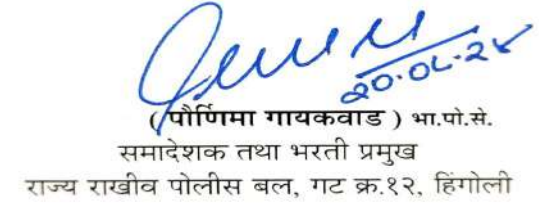 ( पौर्णिमा गायकवाड ) भा.पो.से.
समादेशक तथा भरती प्रमुख
राज्य राखीव पोलीस बल, गट क्र.१२, हिंगोली